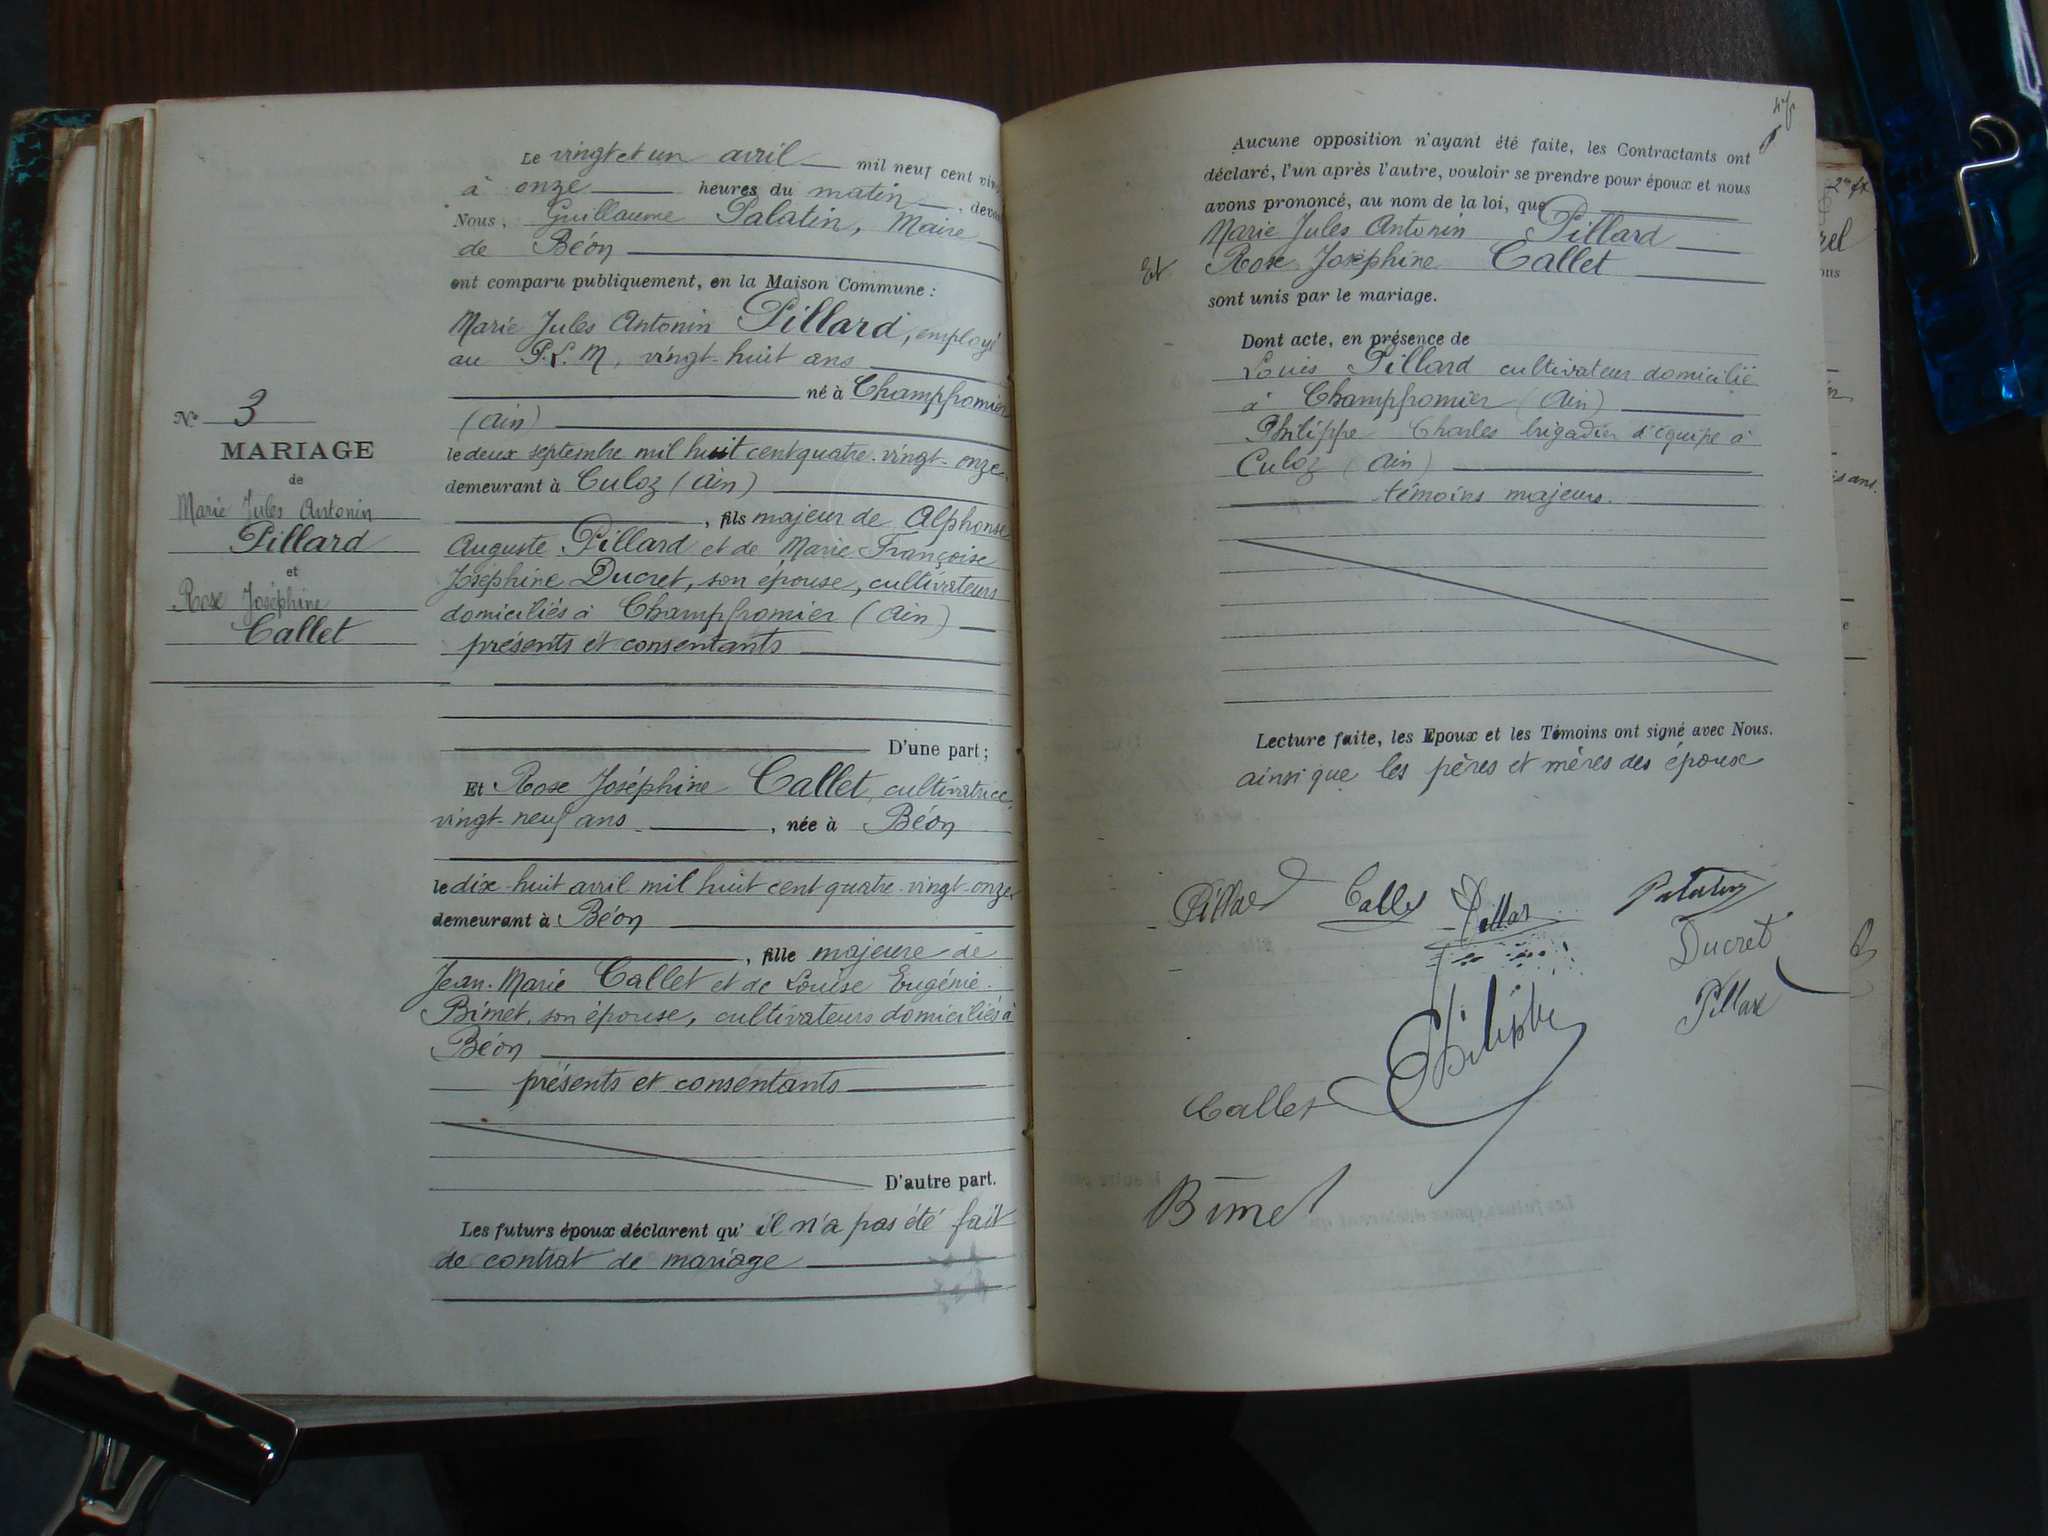 Le vingt et un avril mil neuf cent
à onze heures du matin,
Nous, Guillaume Palatin, Maire
de Béon
ont comparu publiquement, en la Maison Commune :
Marie Jules Antonin Pillard, employé
au P.L.M, vingt-huit ans
né à Champfromier
(Ain)
le deux septembre mil huit cent quatre-vingt-onze,
demeurant à Culoz (Ain)
, fils majeur de Alphonse
Auguste Pillard et de Marie Françoise
Joséphine Ducret, son épouse, cultivateurs
domiciliés à Champfromier (Ain)
présents et consentants
D'une part ;
Et Rose Joséphine Callet, cultivatrice,
vingt-neuf ans, née à Béon
le dix-huit avril mil huit cent quatre-vingt-onze
demeurant à Béon
, fille majeure de
Jean-Marie Callet et de Louise Eugénie
Bimet, son épouse, cultivateurs domiciliés à
Béon
présents et consentants
D'autre part.
Les futurs époux déclarent qu'il n'a pas été fait
de contrat de mariage
No 3
MARIAGE
de
Marie Jules Antonin
Pillard
et
Rose Joséphine
Callet
Aucune opposition n'ayant été faite, les Contractants ont
déclaré, l'un après l'autre, vouloir se prendre pour époux et nous
avons prononcé, au nom de la loi, que
Marie Jules Antonin Pillard
Et Rose Joséphine Callet
sont unis par le mariage.
Dont acte, en présence de
Louis Pillard cultivateur domicilié
à Champfromier (Ain)
Philippe Charles brigadier d'équipe à
Culoz (Ain)
témoins majeurs.
Lecture faite, les Epoux et les Témoins ont signé avec Nous.
ainsi que les pères et mères des époux
Pillard Callet Pillar Palatin
Ducret
Philippe Pillard
Callet
Bimet